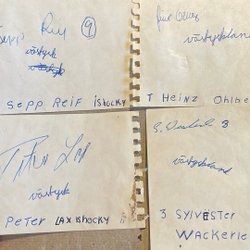 Sepp Rei
9
västtysk
Sepp Reif ishocky
västtyskland
T Heinz Ohlbe
västtysk
Peter LAX ishocky
S. Wackerle 3
västtyskland
3 SYLVESTER
WACKERLE